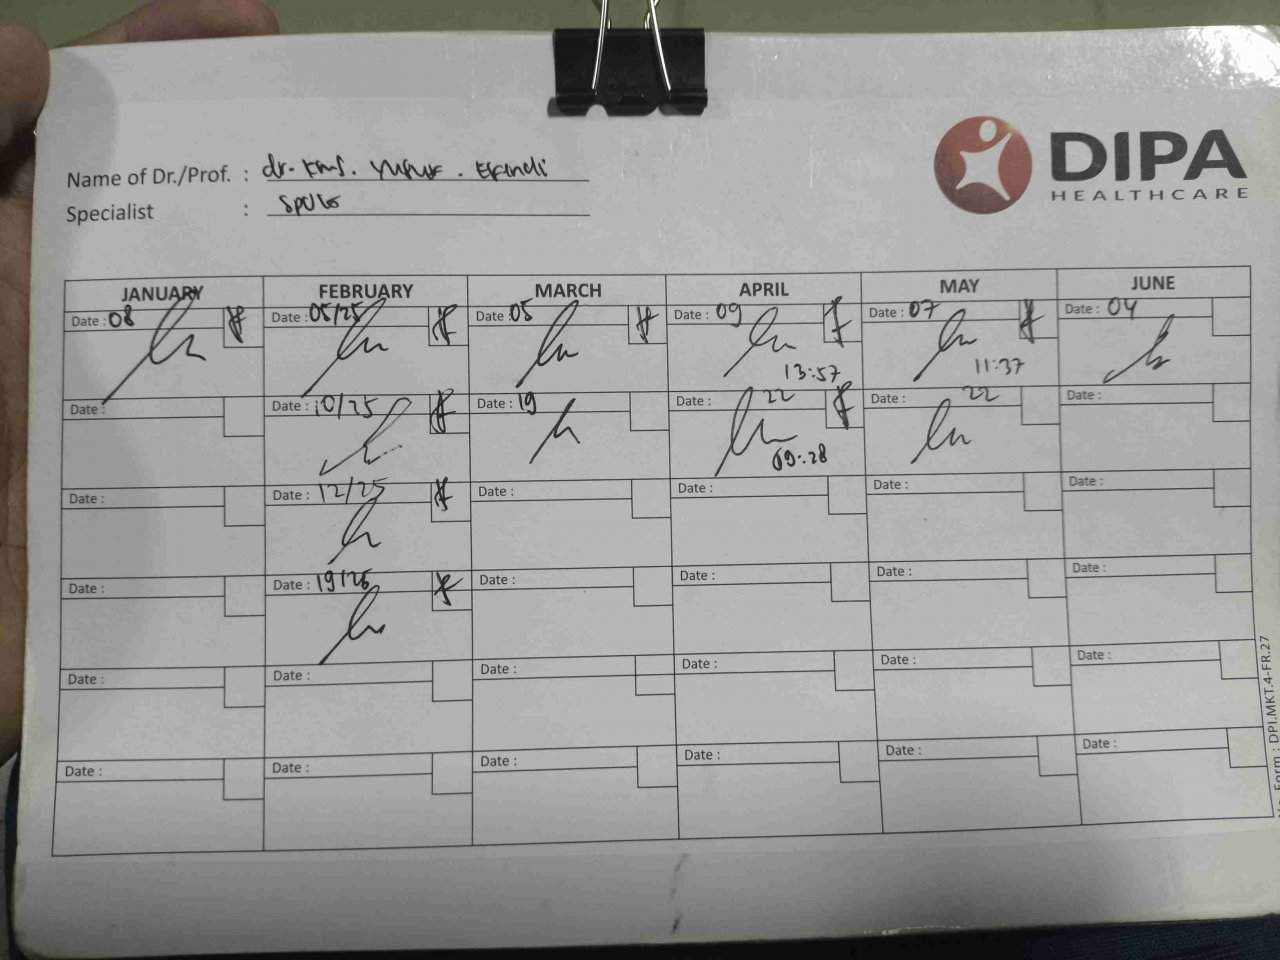 DIPA
HEALTHCARE
Name of Dr./Prof. : dr. Kms. Yusuf. Effendi
Specialist :
JANUARY FEBRUARY MARCH APRIL MAY JUNE
Date : 08 Date : 05/25 Date : 05 Date : 09 Date : 07 Date : 04
13:57 11:37
Date : Date : 10/25 Date : 19 Date : 22 Date : 22 Date :
09:28
Date : Date : 12/25 Date : Date : Date : Date :
Date : Date : 19/25 Date : Date : Date : Date :
Date : Date : Date : Date : Date : Date :
Date : Date : Date : Date : Date : Date :
Form : DPI.MKT.4-FR.27